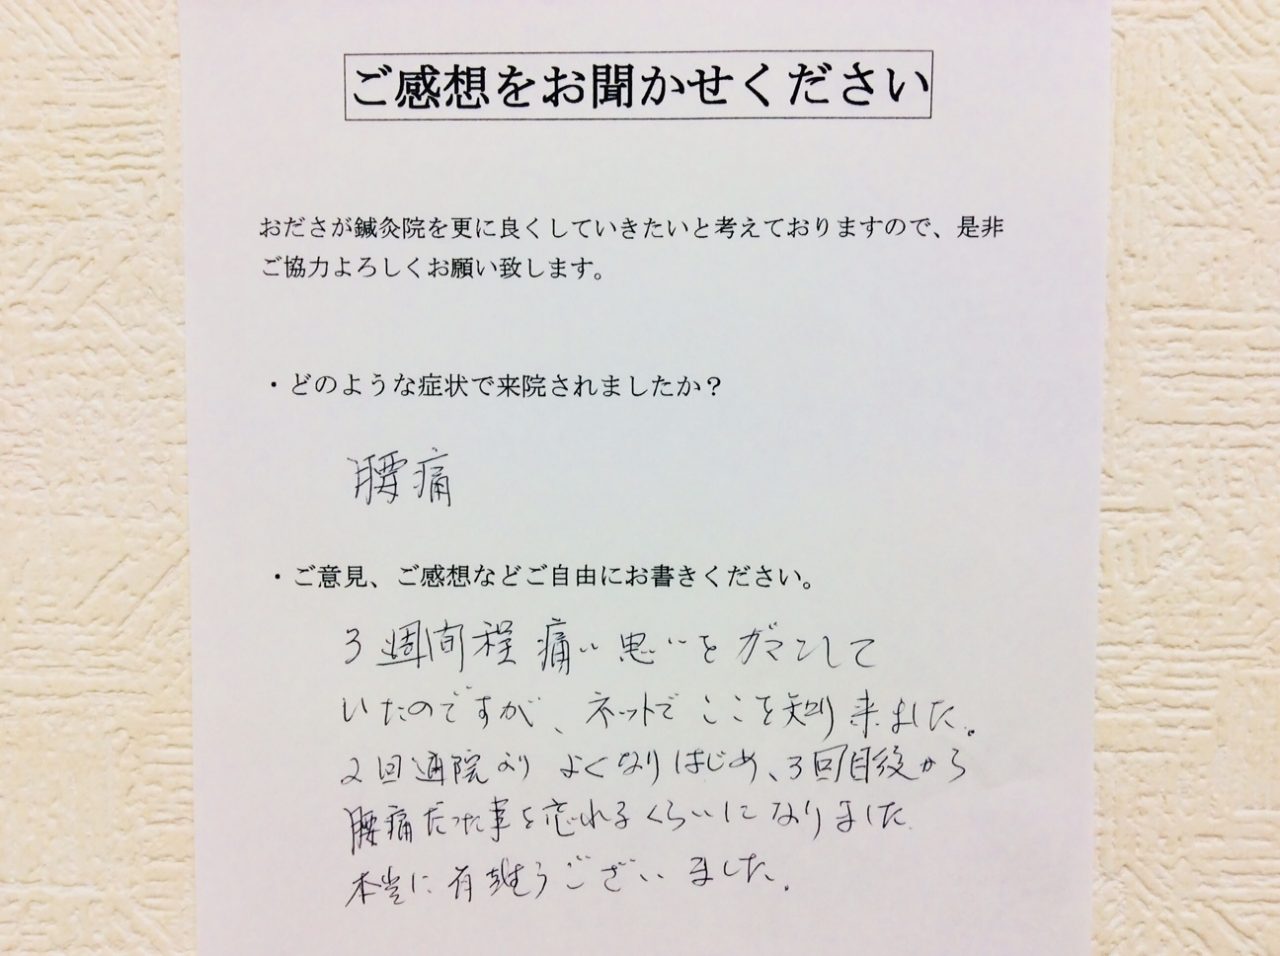 ご感想をお聞かせください
おださが鍼灸院を更に良くしていきたいと考えておりますので、是非
ご協力よろしくお願い致します。
・どのような症状で来院されましたか？
腰痛
・ご意見、ご感想などご自由にお書きください。
3週間程痛い思いをガマンして
いたのですが、ネットでここを知り来ました。
2回通院よりよくなりはじめ、3回目後から
腰痛だった事を忘れるくらいになりました
本当に有難うございました。